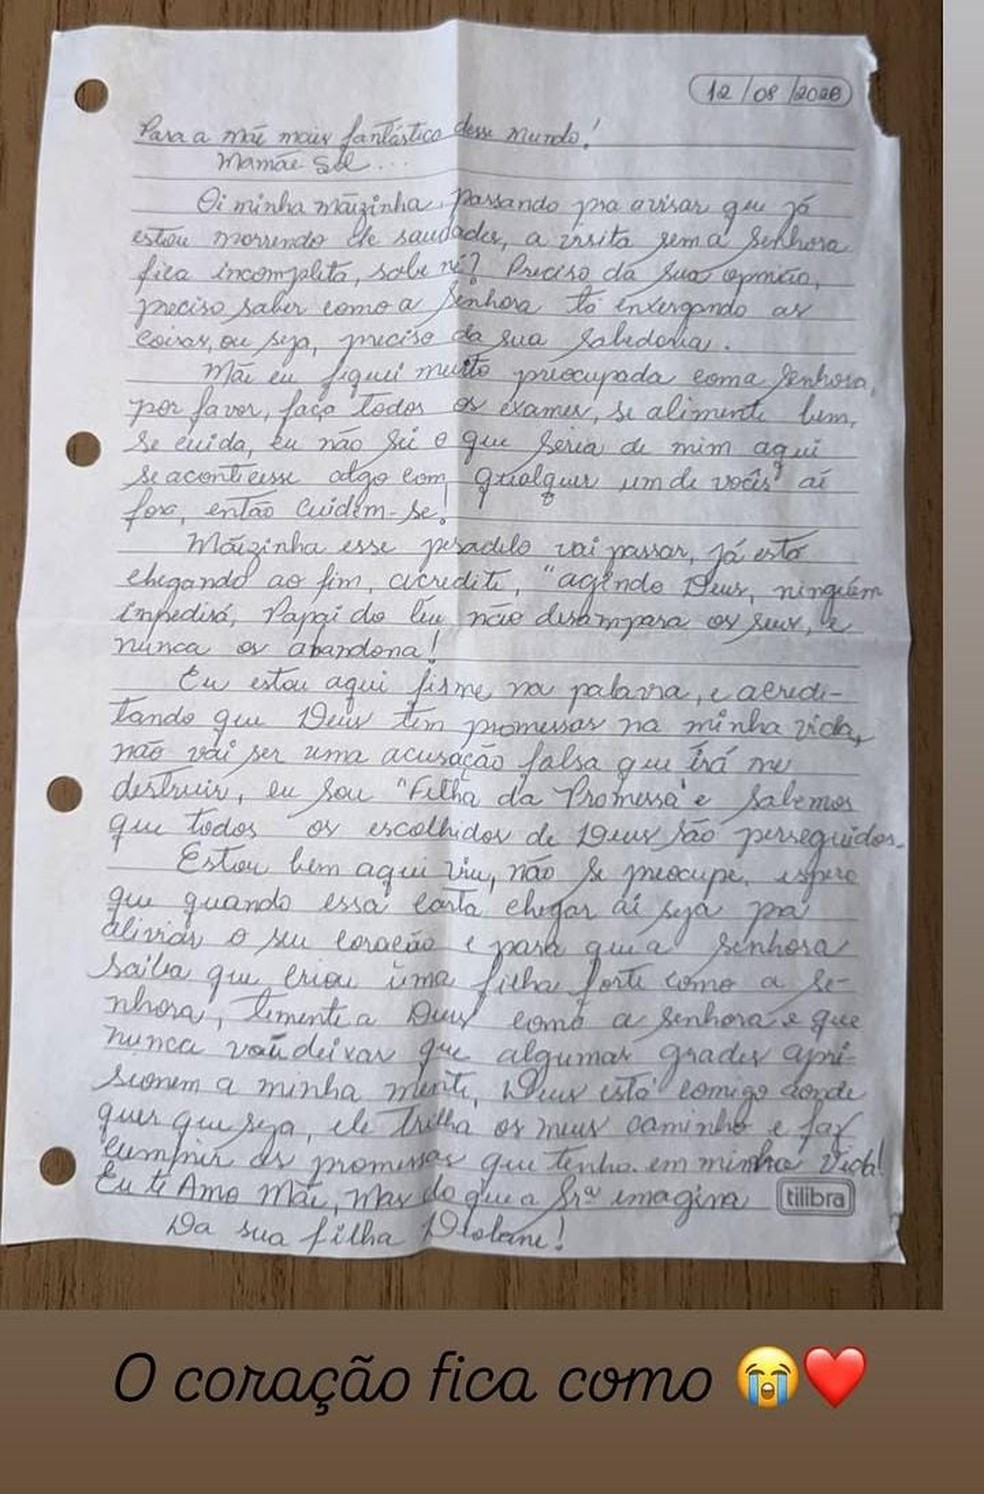 12/08/2020
Para a mãe mais fantástica desse mundo!
Mamãe Sol...
Oi minha mãizinha, passando pra avisar que já
estou morrendo de saudades, a visita sem a Senhora
fica incompleta, sabe né? Preciso da sua opinião,
preciso saber como a Senhora tá enxergando as
coisas, ou seja, preciso da sua sabedoria.
Mãe eu fiquei muito preocupada com a Senhora,
por favor, faça todos os exames, se alimente bem,
se cuida, eu não sei o que seria de mim aqui
se acontecesse algo com qualquer um de vocês aí
fora, então cuidem-se!
Mãizinha esse pesadelo vai passar, já está
chegando ao fim, acredite, "agindo Deus, ninguém
impedirá, Papai do Céu não desampara os seus, e
nunca os abandona!
Eu estou aqui firme na palavra, e acredi-
tando que Deus tem promessas na minha vida,
não vai ser uma acusação falsa que irá me
destruir, eu sou "Filha da Promessa" e sabemos
que todos os escolhidos de Deus são perseguidos.
Estou bem aqui viu, não se preocupe, espero
que quando essa carta chegar aí seja pra
aliviar o seu coração e para que a Senhora
saiba que criou uma filha forte como a Se-
nhora, temente a Deus como a Senhora e que
nunca vou deixar que algumas grades apri-
sionem a minha mente, Deus está comigo aonde
quer que seja, ele trilha os meus caminhos e faz
cumprir as promessas que tenho em minha Vida!
Eu te Amo Mãe, mas do que a Srª imagina
tilibra
Da sua filha !
O coração fica como 😭❤️